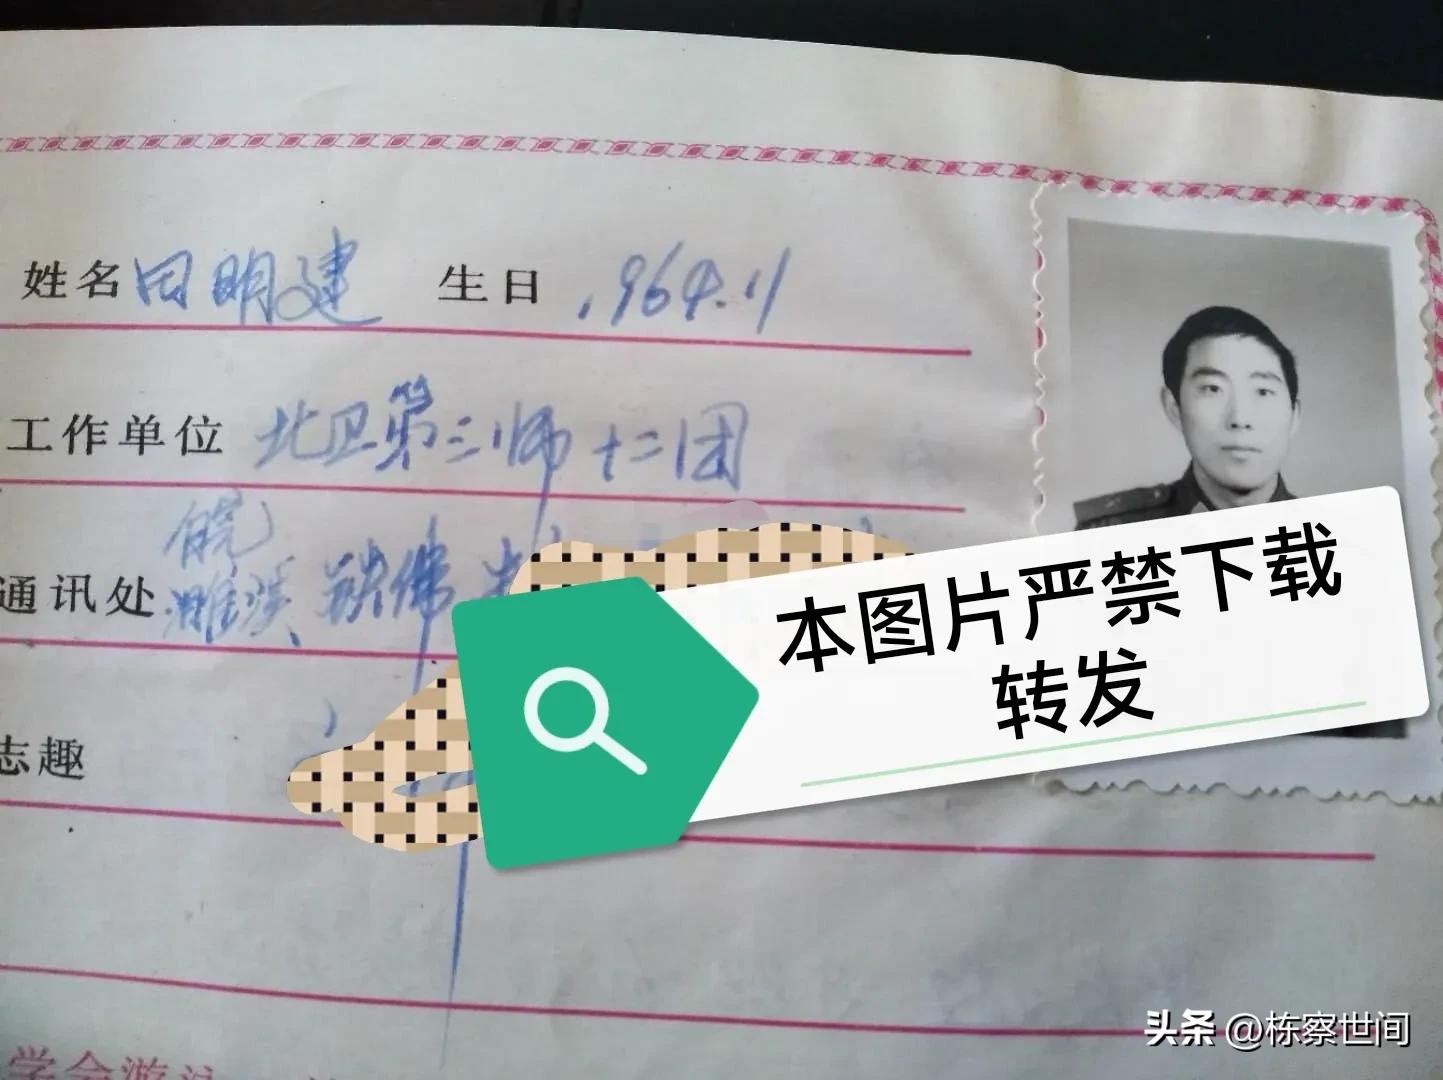 姓名 田明建 生日 1964.11
工作单位 北卫第三师十二团
皖
通讯处 濉溪 铁佛
志趣
本图片严禁下载
转发
学会游泳
头条 @栋察世间